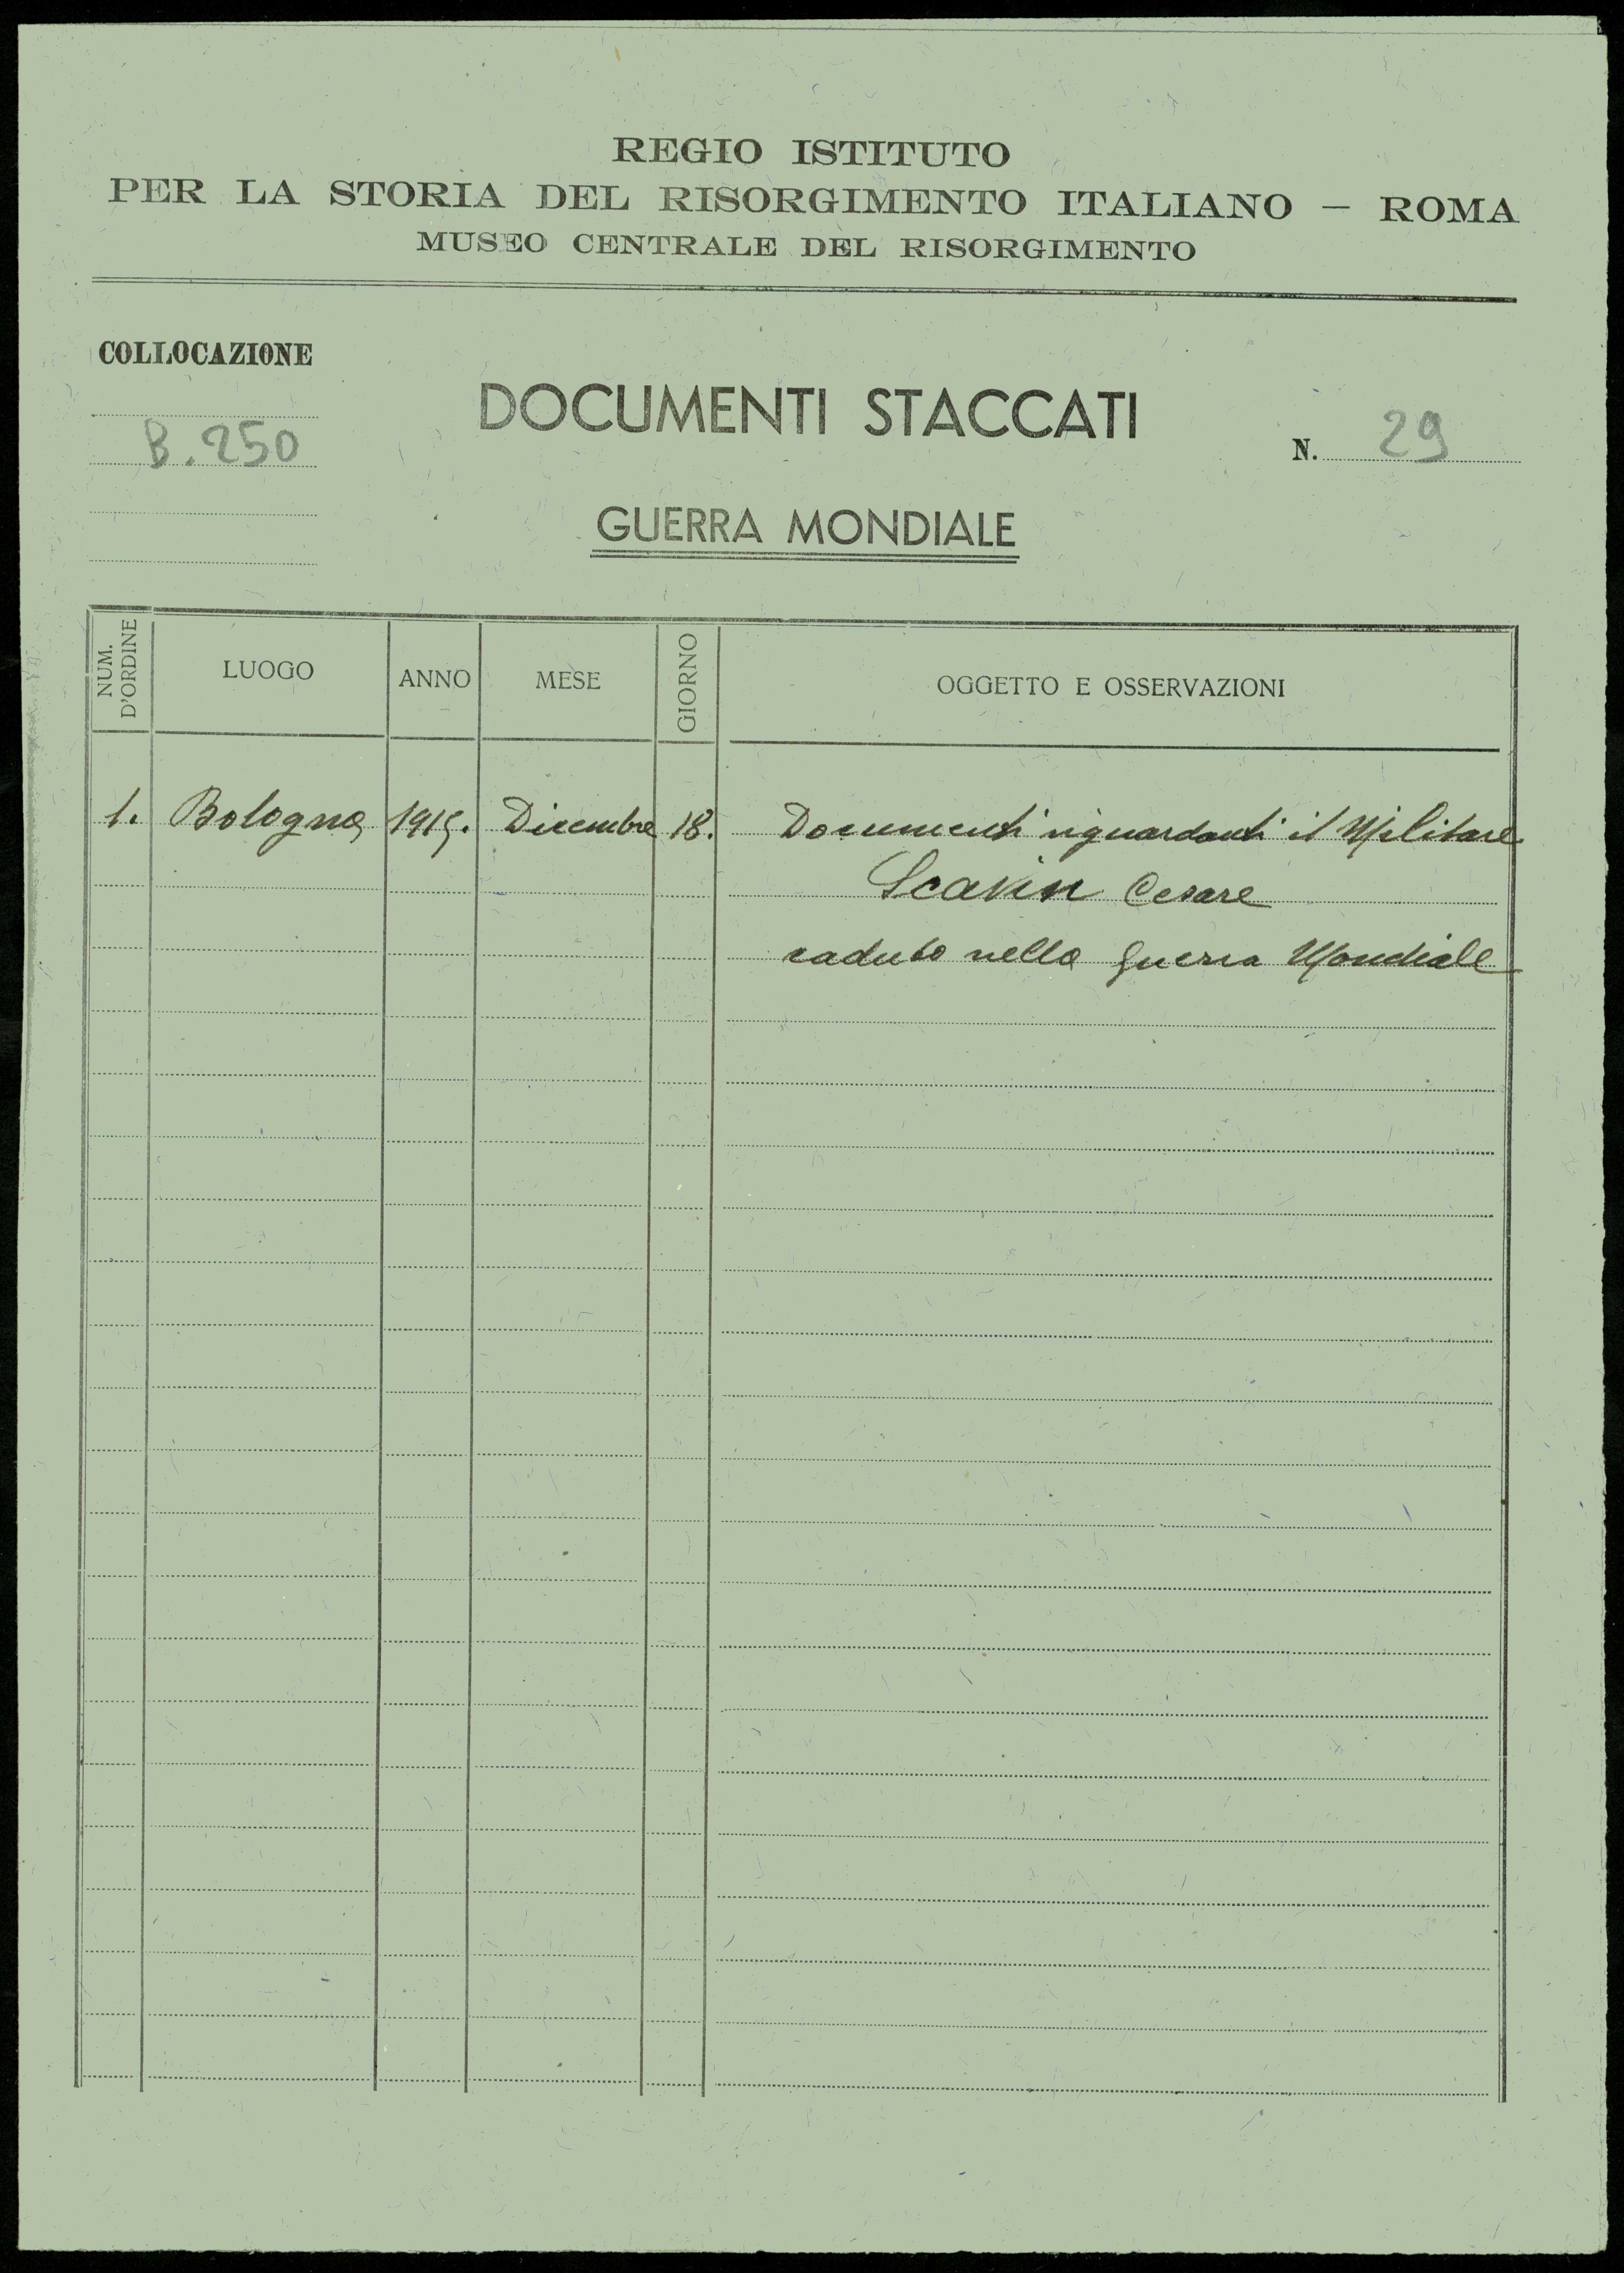 REGIO ISTITUTO
PER LA STORIA DEL RISORGIMENTO ITALIANO – ROMA
MUSEO CENTRALE DEL RISORGIMENTO
COLLOCAZIONE
B. 250
DOCUMENTI STACCATI
N. 29
GUERRA MONDIALE
NUM. D'ORDINE LUOGO ANNO MESE GIORNO OGGETTO E OSSERVAZIONI
1. Bologna 1915. Dicembre 18. Documenti riguardanti il Militare
Scavin Cesare
caduto nella guerra Mondiale